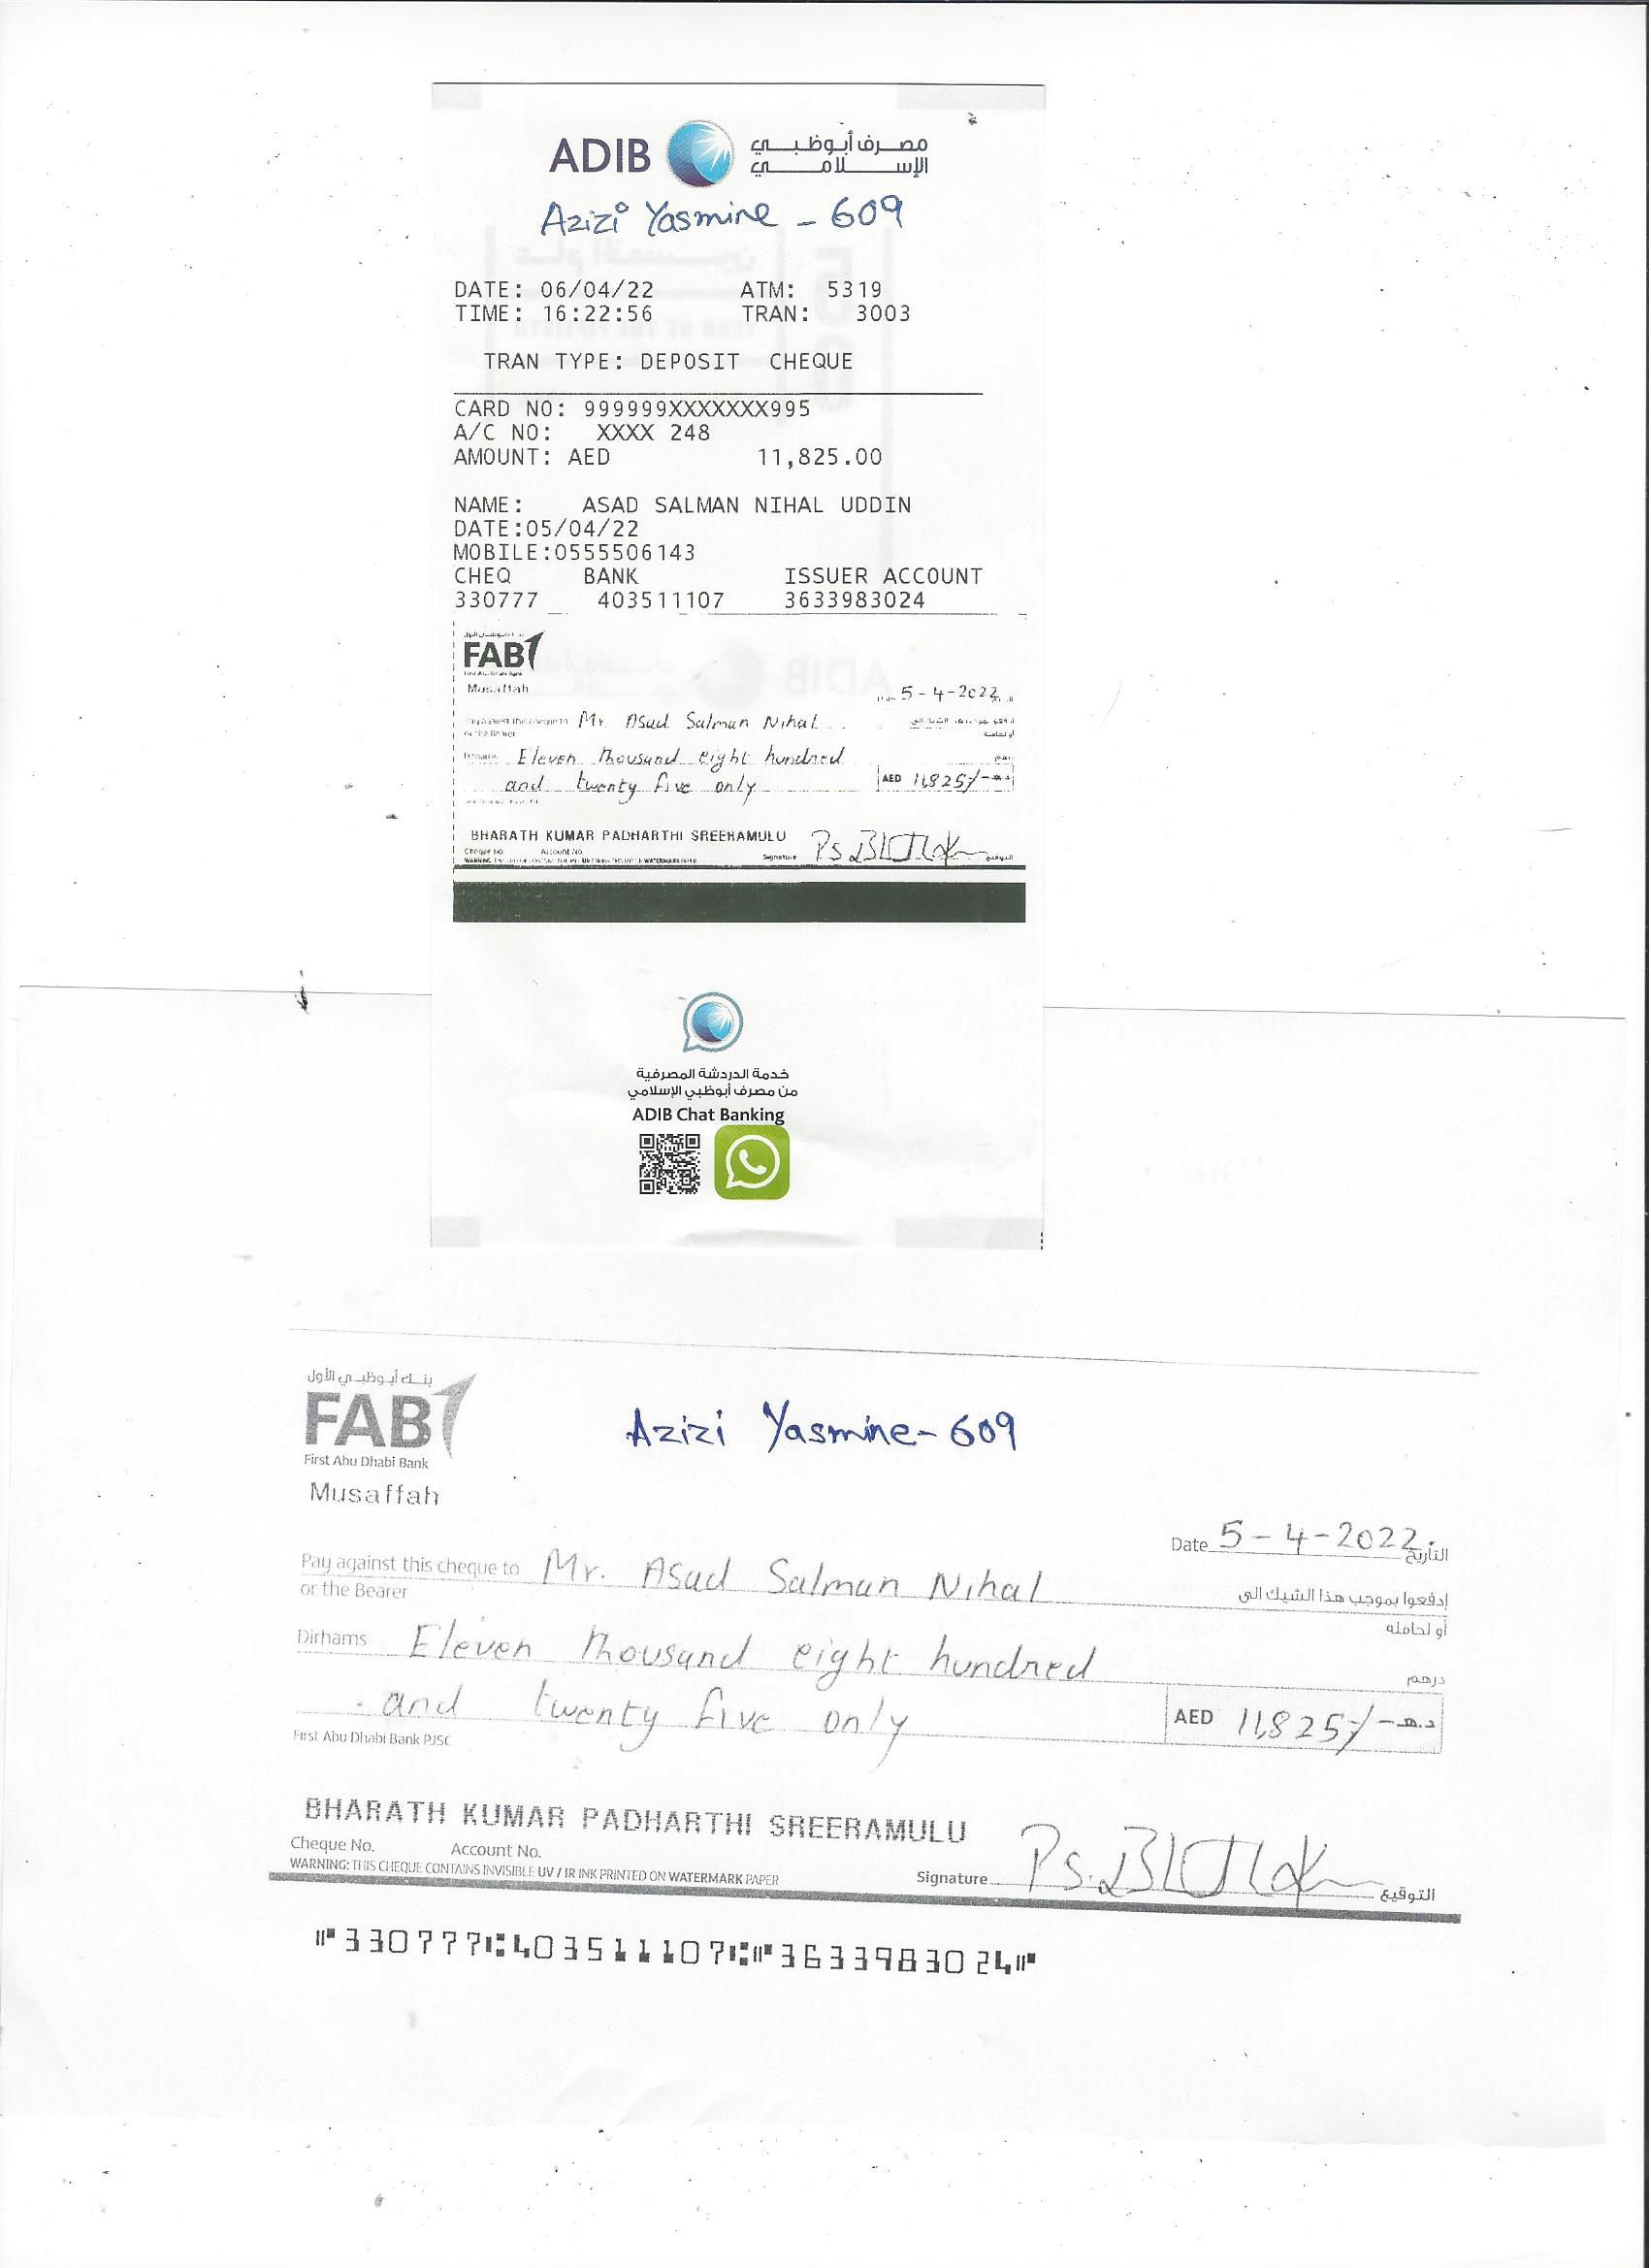 ADIB مصرف أبوظبي
الإسلامي
Azizi Yasmine - 609
DATE: 06/04/22 ATM: 5319
TIME: 16:22:56 TRAN: 3003
TRAN TYPE: DEPOSIT CHEQUE
CARD NO: 999999XXXXXXX995
A/C NO: XXXX 248
AMOUNT: AED 11,825.00
NAME: ASAD SALMAN NIHAL UDDIN
DATE:05/04/22
MOBILE:0555506143
CHEQ BANK ISSUER ACCOUNT
330777 403511107 3633983024
FAB
First Abu Dhabi Bank
Musaffah
5-4-2022
Pay against this cheque to Mr. Asad Salman Nihal
or the Bearer أو لحامله
Dirhams Eleven Thousand eight hundred درهم
and twenty five only AED 11,825/- د.هـ
BHARATH KUMAR PADHARTHI SREERAMULU
Cheque No. Account No.
Signature Ps. التوقيع
خدمة الدردشة المصرفية
من مصرف أبوظبي الإسلامي
ADIB Chat Banking
بنك أبوظبي الأول
FAB
First Abu Dhabi Bank
Azizi Yasmine - 609
Musaffah
Date 5-4-2022. التاريخ
Pay against this cheque to Mr. Asad Salman Nihal إدفعوا بموجب هذا الشيك الى
or the Bearer أو لحامله
Dirhams Eleven Thousand eight hundred درهم
and twenty five only AED 11,825/- د.هـ
First Abu Dhabi Bank PJSC
BHARATH KUMAR PADHARTHI SREERAMULU
Cheque No. Account No.
WARNING: THIS CHEQUE CONTAINS INVISIBLE UV / IR INK PRINTED ON WATERMARK PAPER
Signature Ps. التوقيع
⑈330777⑆403511107⑆⑈3633983024⑈